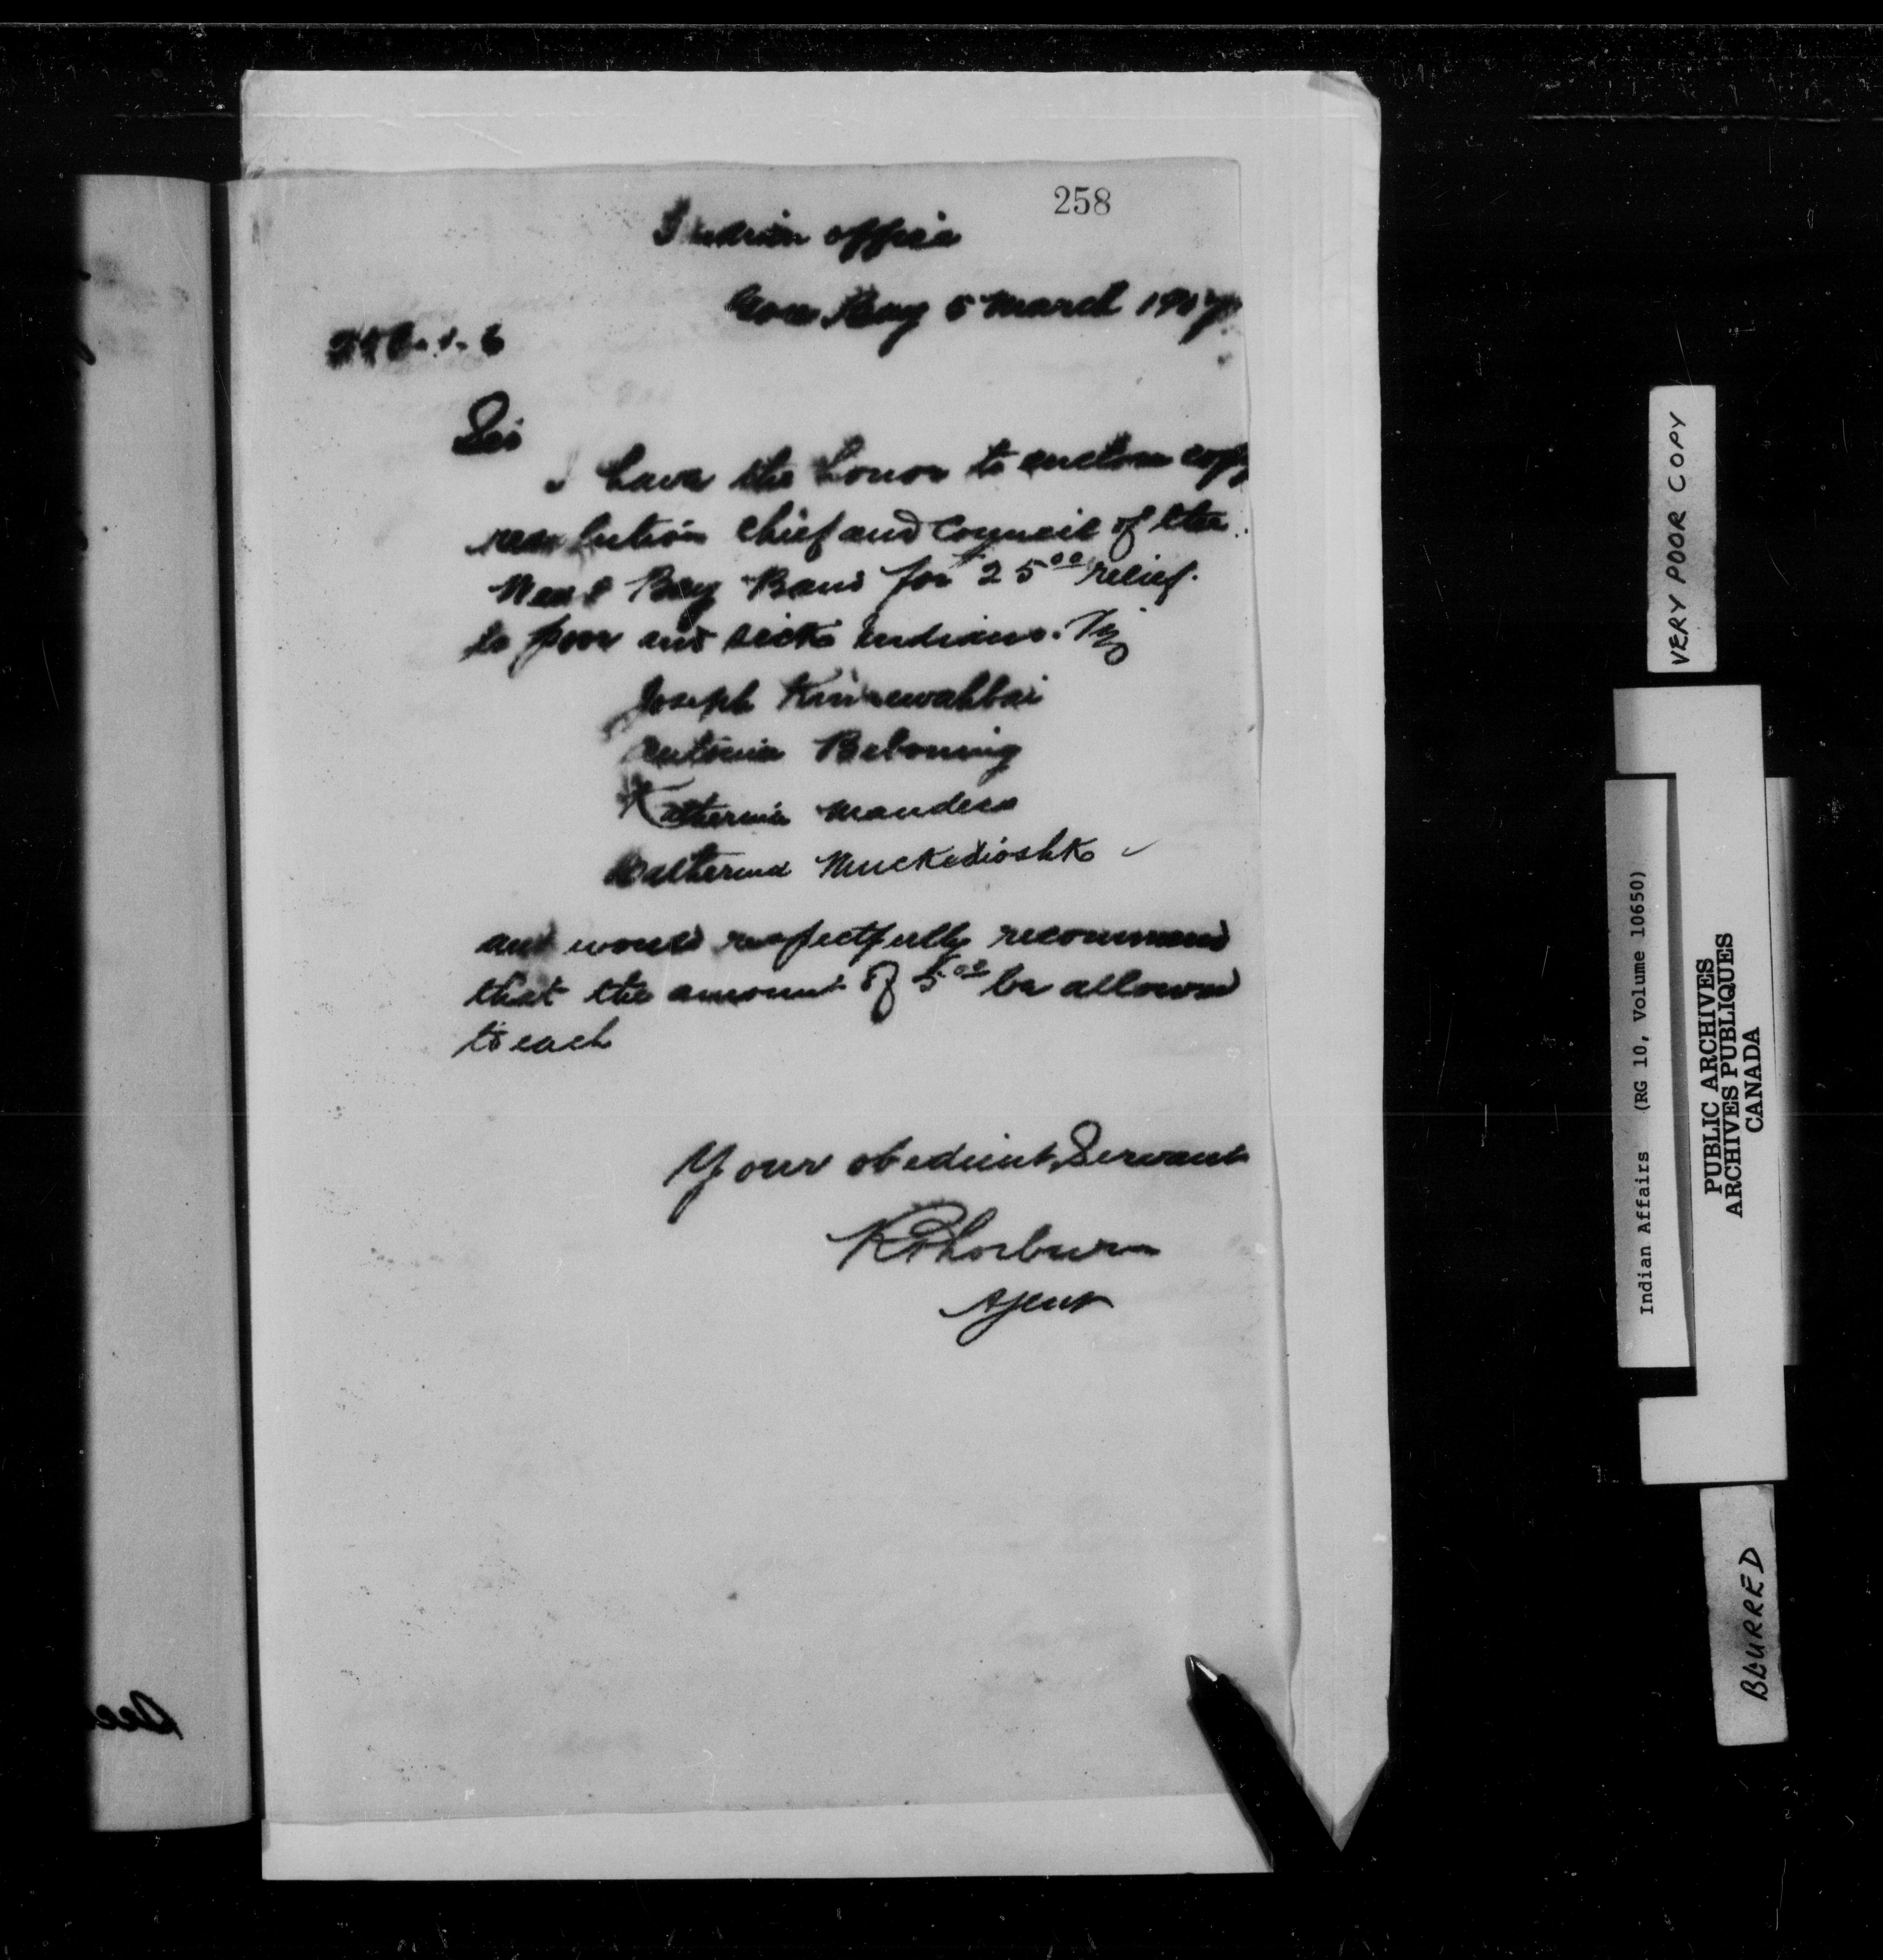 258
Indian office
Gore Bay 5 March 1907
Sir
I have the honor to enclose copy
resolution Chief and Council of the
West Bay Band for $25.00 relief
to poor and sick Indians. Viz
Joseph
Antoine Beboning
Katherine
Catherine
and would respectfully recommend
that the amount of $5.00 be allowed
to each
Your obedient Servant
R Thorburn
Agent
VERY POOR COPY
Indian Affairs (RG 10, Volume 10650)
PUBLIC ARCHIVES
ARCHIVES PUBLIQUES
CANADA
BLURRED